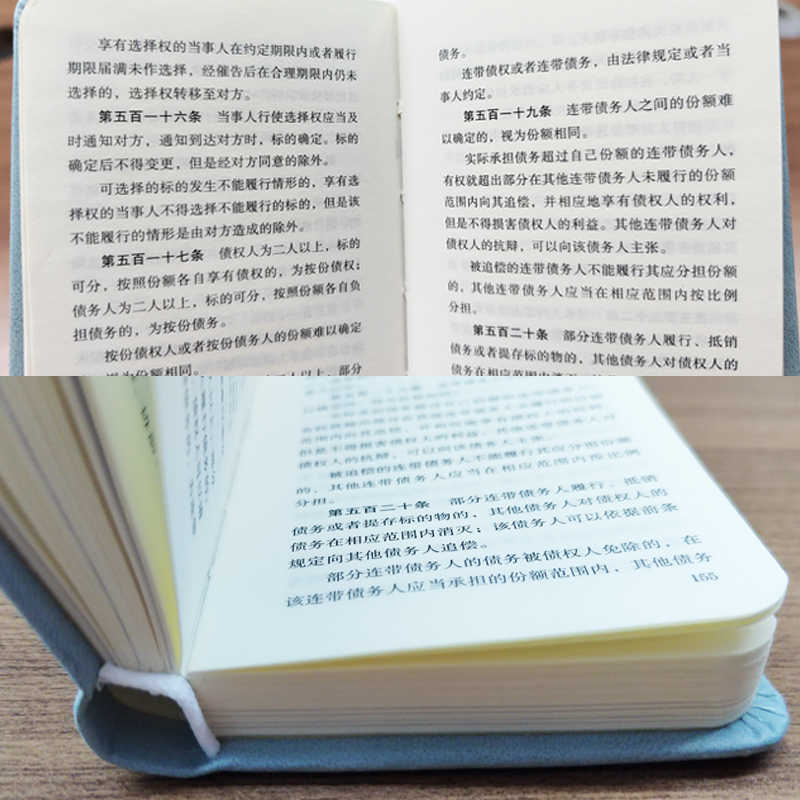 享有选择权的当事人在约定期限内或者履行
期限届满未作选择，经催告后在合理期限内仍未
选择的，选择权转移至对方。
第五百一十六条 当事人行使选择权应当及
时通知对方，通知到达对方时，标的确定。标的
确定后不得变更，但是经对方同意的除外。
可选择的标的发生不能履行情形的，享有选
择权的当事人不得选择不能履行的标的，但是该
不能履行的情形是由对方造成的除外。
第五百一十七条 债权人为二人以上，标的
可分，按照份额各自享有债权的，为按份债权；
债务人为二人以上，标的可分，按照份额各自负
担债务的，为按份债务。
按份债权人或者按份债务人的份额难以确定
视为份额相同。
二人以上，部分
债务。
连带债权或者连带债务，由法律规定或者当
事人约定。
第五百一十九条 连带债务人之间的份额难
以确定的，视为份额相同。
实际承担债务超过自己份额的连带债务人，
有权就超出部分在其他连带债务人未履行的份额
范围内向其追偿，并相应地享有债权人的权利，
但是不得损害债权人的利益。其他连带债务人对
债权人的抗辩，可以向该债务人主张。
被追偿的连带债务人不能履行其应分担份额
的，其他连带债务人应当在相应范围内按比例
分担。
第五百二十条 部分连带债务人履行、抵销
债务或者提存标的物的，其他债务人对债权人的
债务在相应范围内消灭
但是不得损害债权人的利益。其他连带债务人对
债权人的抗辩，可以向该债务人主张。
被追偿的连带债务人不能履行其应分担份额
的，其他连带债务人应当在相应范围内按比例
分担。
第五百二十条 部分连带债务人履行、抵销
债务或者提存标的物的，其他债务人对债权人的
债务在相应范围内消灭；该债务人可以依据前条
规定向其他债务人追偿。
部分连带债务人的债务被债权人免除的，在
该连带债务人应当承担的份额范围内，其他债务
155